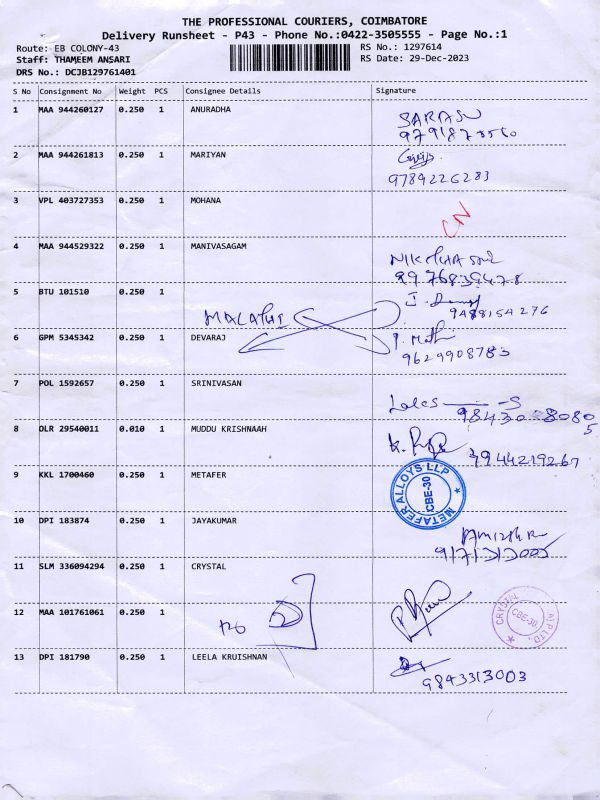 THE PROFESSIONAL COURIERS, COIMBATORE
Delivery Runsheet - P43 - Phone No.:0422-3505555 - Page No.:1
Route: EB COLONY-43 RS No.: 1297614
Staff: THAMEEM ANSARI RS Date: 29-Dec-2023
DRS No.: DCJB129761401
S No Consignment No Weight PCS Consignee Details Signature
1 MAA 944260127 0.250 1 ANURADHA
SARASU
2 MAA 944261813 0.250 1 MARIYAN
9789226283
3 VPL 403727353 0.250 1 MOHANA
CN
4 MAA 944529322 0.250 1 MANIVASAGAM
9976839478
5 BTU 101510 0.250 1
9488154276
MALATHI
6 GPM 5345342 0.250 1 DEVARAJ
9629908783
7 POL 1592657 0.250 1 SRINIVASAN
98430 80805
8 DLR 29540011 0.010 1 MUDDU KRISHNAAH
9944219267
9 KKL 1700460 0.250 1 METAFER
METAFER ALLOYS LLP
CBE-30
10 DPI 183874 0.250 1 JAYAKUMAR
11 SLM 336094294 0.250 1 CRYSTAL
12 MAA 101761061 0.250 1
CRYSTAL
CBE-30
13 DPI 181790 0.250 1 LEELA KRUISHNAN
9843313003